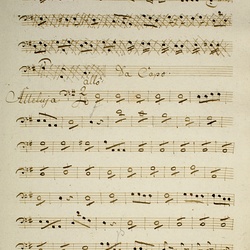 Da Capo.
allo
Alleluja